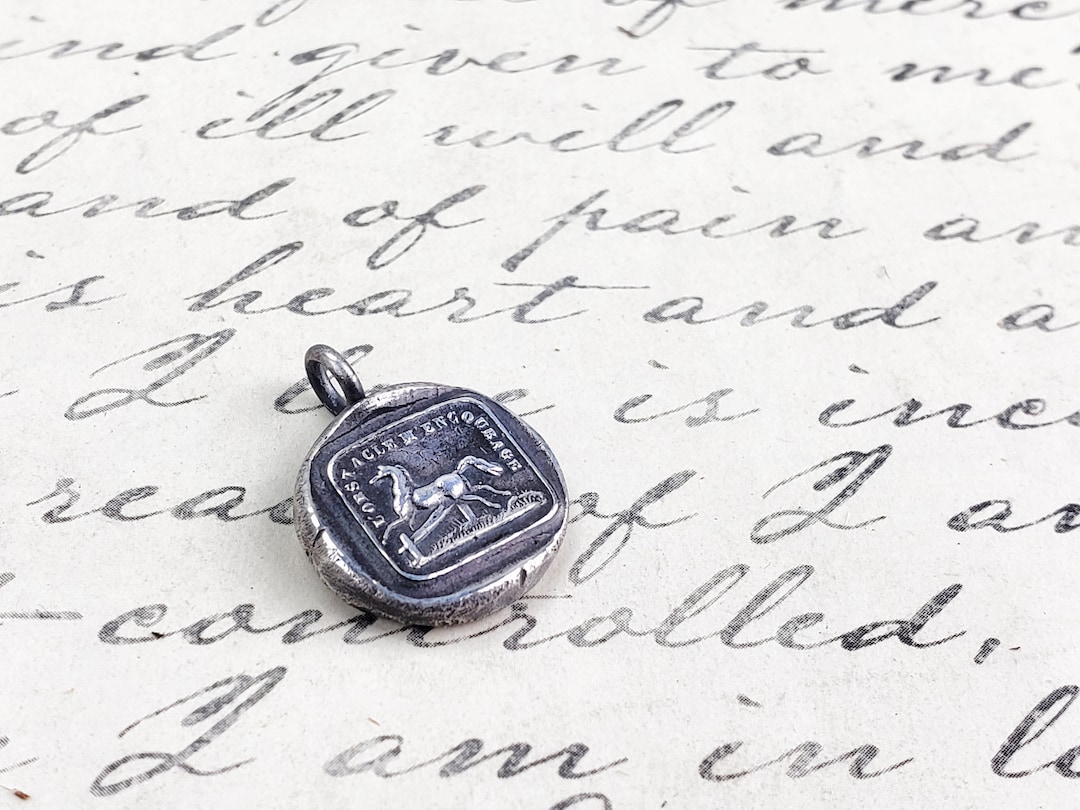 of mere
ind given to me
of ill will and
and of pain an
is heart and a
I is inca
rea of I an
rolled,
I am in l
L'OBSTACLE M'ENCOURAGE